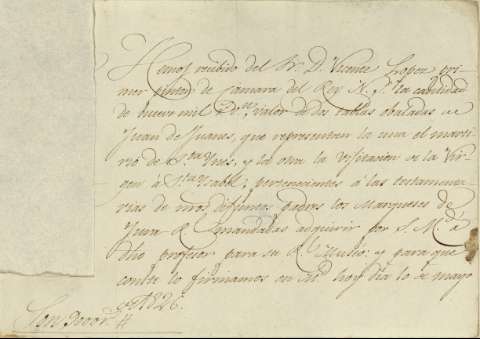 Hemos recibido del Sr. D. Vicente Lopez pri-
mer pintor de camara del Rey N. S. la cantidad
de nueve mil Rs. valor de dos tablas obaladas de
Juan de Juanes, que representan la una el marti-
rio de Sta. Ynes, y la otra la visitacion de la Vir-
gen á Sta. Ysabel; pertenecientes á las testamenta-
rias de nros. difuntos padres los Marqueses de
Jura R. mandadas adquirir por S. M. á
dho profesor para su Rl. Museo; y para que
conste lo firmamos en Md. hoy dia 10 de mayo
de 1826.
Son 9000 rs.